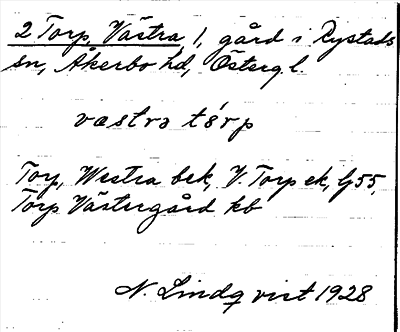 2 Torp, Västra 1, gård i Rystads
sn, Åkerbo hd, Österg. l.
vastrə tǒrp
Torp, Westra bek, V. Torp ek, G 55,
Torp Västergård kb
N. Lindqvist 1928